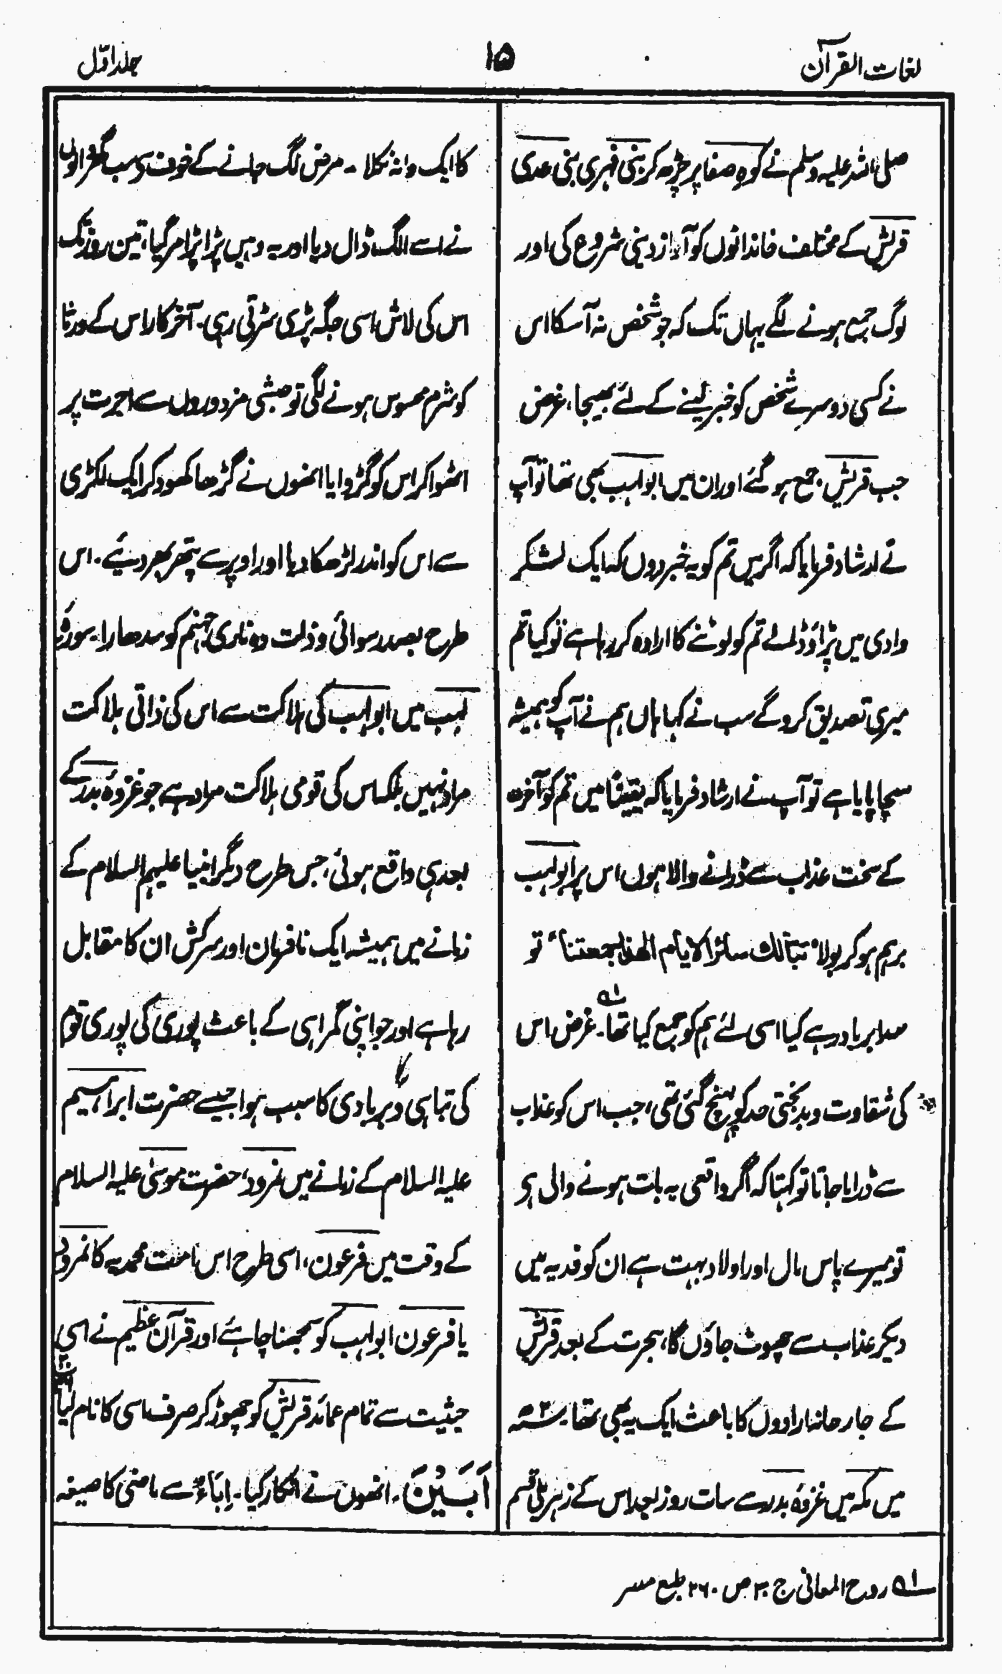 لغات القرآن
۱۵
جلد اوّل
صلی اللہ علیہ وسلم نے کوہِ صفا پر چڑھ کر بنی فہری بنی عدی
قریش کے مختلف خاندانوں کو آواز دینی شروع کی اور
لوگ جمع ہونے لگے یہاں تک کہ جو شخص نہ آسکا اس
نے کسی دوسرے شخص کو خبر لینے کے لئے بھیجا، غرض
جب قریش جمع ہو گئے اور ان میں ابو لہب بھی تھا تو آپ
نے ارشاد فرمایا کہ اگر میں تم کو یہ خبر دوں کہ ایک لشکر
وادی میں پڑاؤ ڈالے تم کو لوٹنے کا ارادہ کر رہا ہے تو کیا تم
میری تصدیق کرو گے سب نے کہا ہاں ہم نے آپ کو ہمیشہ
سچا پایا ہے تو آپ نے ارشاد فرمایا کہ یقیناً میں تم کو آخرت
کے سخت عذاب سے ڈرانے والا ہوں اس پر ابو لہب
برہم ہو کر بولا "تبالك سائر الايام الهذا جمعتنا" تو
سدا برباد رہے کیا اسی لئے ہم کو جمع کیا تھا۔ ؎۱ غرض اس
کی شقاوت و بدبختی حد کو پہنچ گئی تھی، جب اس کو عذاب
سے ڈرایا جاتا تو کہتا کہ اگر واقعی یہ بات ہونے والی ہے
تو میرے پاس مال اور اولاد بہت ہے ان کو فدیہ میں
دیکر عذاب سے چھوٹ جاؤں گا، ہجرت کے بعد قریش
کے جارحانہ ارادوں کا باعث ایک یہ بھی تھا۔ ۲ھ
میں مکہ میں غزوۂ بدر سے سات روز بعد اس کے زہریلی قسم
کا ایک دانہ نکلا۔ مرض لگ جانے کے خوف سے سب گھر والوں
نے اسے الگ ڈال دیا اور یہ وہیں پڑا پڑا مر گیا، تین روز تک
اس کی لاش اسی جگہ پڑی سڑتی رہی۔ آخر کار اس کے ورثا
کو شرم محسوس ہونے لگی تو حبشی مزدوروں سے اجرت پر
اٹھوا کر اس کو گڑوایا انھوں نے گڑھا کھود کر ایک لکڑی
سے اس کو اندر لڑھکا دیا اور اوپر سے پتھر بھر دیئے۔ اس
طرح بصد رسوائی و ذلت وہ ناری جہنم کو سدھارا۔ سورۂ
لہب میں ابو لہب کی ہلاکت سے اس کی ذاتی ہلاکت
مراد نہیں بلکہ اس کی قومی ہلاکت مراد ہے جو غزوۂ بدر کے
بعد ہی واقع ہوئی، جس طرح دیگر انبیا علیہم السلام کے
زمانے میں ہمیشہ ایک نافرمان اور سرکش ان کا مقابل
رہا ہے اور جو اپنی گمراہی کے باعث پوری کی پوری قوم
کی تباہی و بربادی کا سبب ہوا جیسے حضرت ابراہیم
علیہ السلام کے زمانے میں نمرود، حضرت موسیٰ علیہ السلام
کے وقت میں فرعون، اسی طرح اس امت محمدیہ کا نمرود
یا فرعون ابو لہب کو سمجھنا چاہئے اور قرآن عظیم نے اسی
حیثیت سے تمام عمائد قریش کو چھوڑ کر صرف اسی کا نام لیا
اَبَیْنَ۔ انھوں نے انکار کیا۔ اِبَاءٌ سے ماضی کا صیغہ
؎۱ روح المعانی ج ۳۰ ص ۲۶۰ طبع مصر